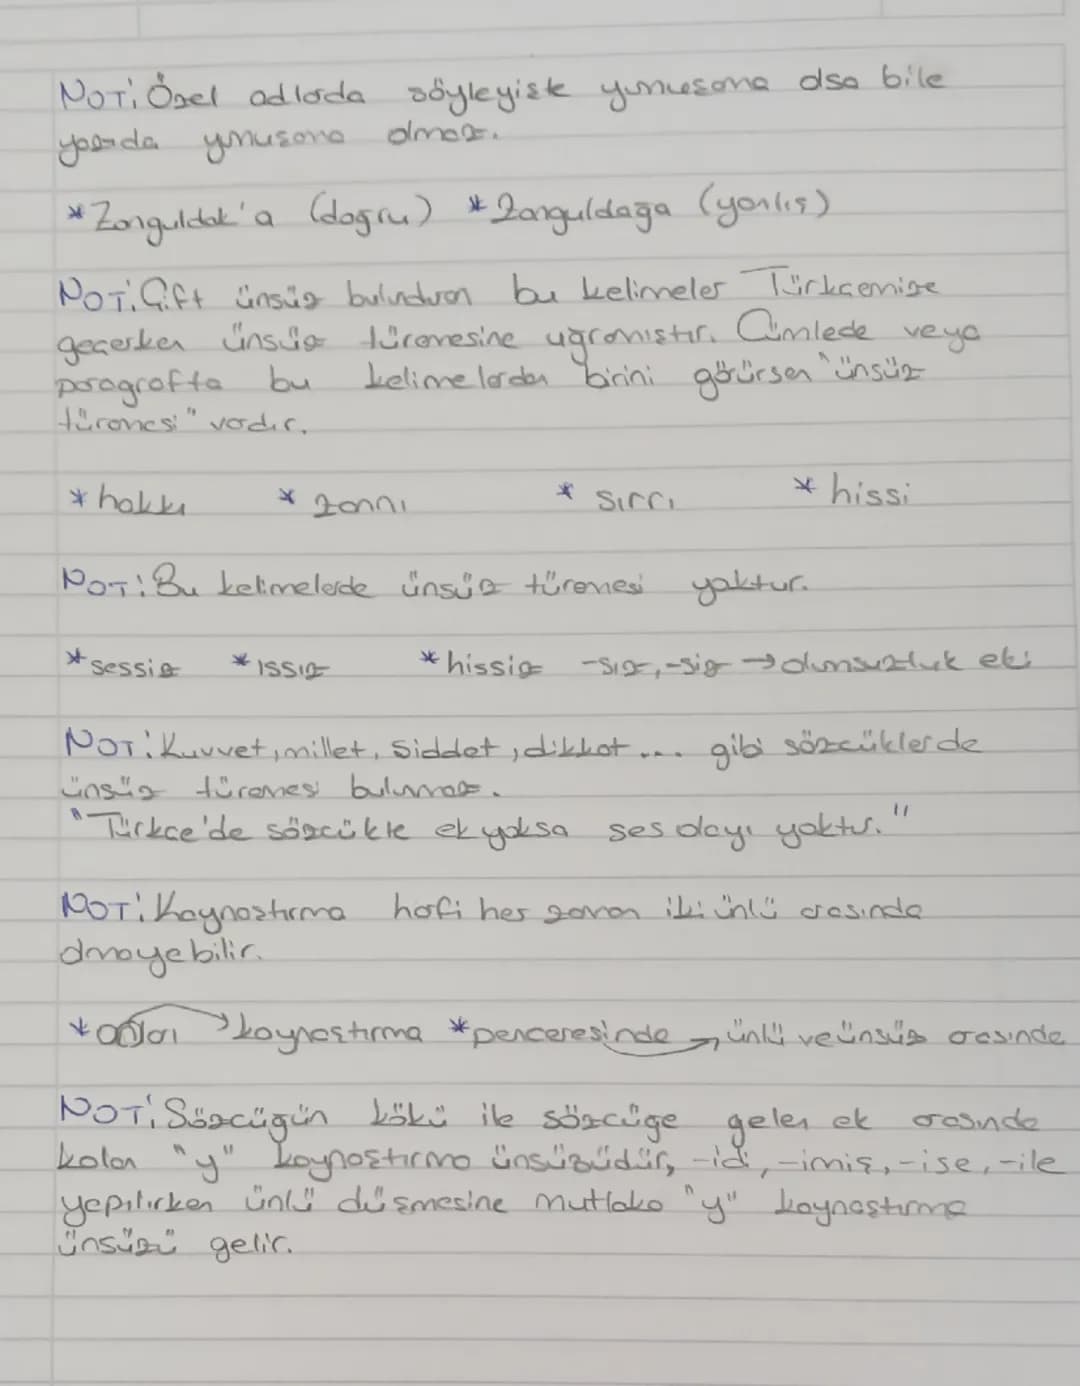 NOT: Özel adlarda söyleyişte yumuşama olsa bile
yazıda yumuşama olmaz.
* Zonguldak'a (doğru) * Zonguldağa (yanlış)
NOT: Çift ünsüz bulunduran bu kelimeler Türkçemize
geçerken ünsüz türemesine uğramıştır. Cümlede veya
paragrafta bu kelimelerden birini görürsen "ünsüz
türemesi" vardır.
* hakkı * zannı * sırrı * hissi
NOT: Bu kelimelerde ünsüz türemesi yoktur.
* sessiz * ıssız * hissiz -sız, -siz → olumsuzluk eki
NOT: Kuvvet, millet, şiddet, dikkat ... gibi sözcüklerde
ünsüz türemesi bulunmaz.
"Türkçe'de sözcükte ek yoksa ses olayı yoktur."
NOT: Kaynaştırma harfi her zaman iki ünlü arasında
olmayebilir.
* onları → kaynaştırma * penceresinde → ünlü ve ünsüz arasında
NOT: Sözcüğün kökü ile sözcüğe gelen ek arasında
kalan "y" kaynaştırma ünsüzüdür, -idi, -imiş, -ise, -ile
yapılırken ünlü düşmesine mutlaka "y" kaynaştırma
ünsüzü gelir.